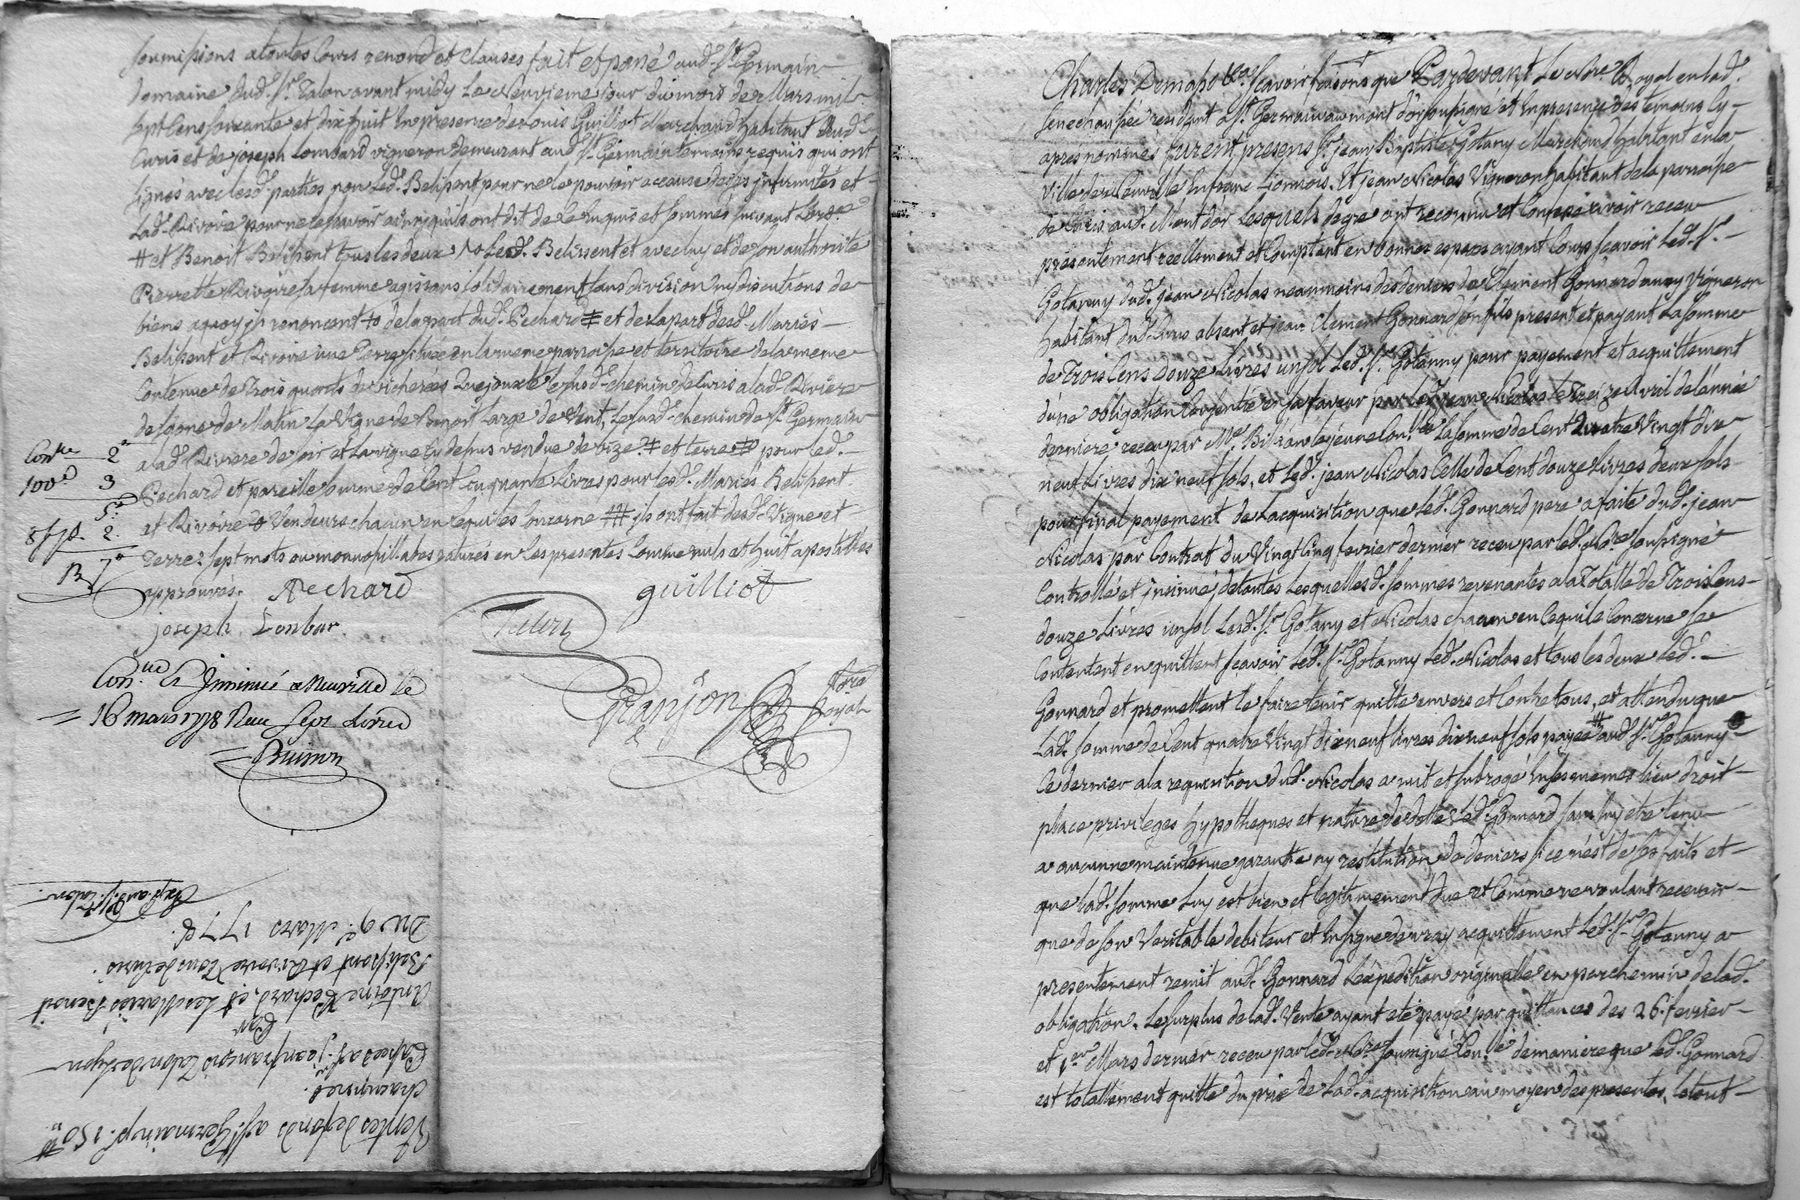 soumissions a toutes Cours renond et Clauses fait et passé aud. St. Germain
domaine dud. Sr. Talon avant midy Le Neuvieme Jour du mois de Mars mil
sept Cens soixante et dix huit En presence de Louis Guilliot Marchand habitant dud.
Curis et de joseph Lombard vigneron demeurant aud. St. Germain temoins requis qui ont
signés avec lesd. parties non Led. Belissent pour ne le pouvoir a cause de ses jnfirmités et
Lad. Rivoire pour ne le scavoir ainsi quils ont dit de ce Enquis et sommés suivant Lord.ce
# et Benoit Belissent tous les deux Led. Belissent et avec luy et de son authorité
Pierrette Rivoire sa femme agissans solidairement sans division ny discutions de
biens aquoy ils renoncent de la part dud. Pechard # et de la part desd. Mariés
Belissent et Rivoire une Terre située en la meme parroisse et territoire de la meme
Contenue de Trois quarts de bicherées Quejouxte le susd. chemin de Curis a lad. Riviere
de soir de Matin La Vigne de Benoit Large de Vent, Le susd. chemin de St. Germain
a lad. Riviere de soir et La vigne Cy dessus vendue de bize. # et terre # pour led.
Pechard et pareille somme de Cent Cinquante Livres pour lesd. Mariés Belissent
et Rivoire Vendeurs chacun en Ce qui les Concerne ## ils ont fait desd. Vigne et
Terre: sept mots ou monnosillabes raturés en les presentes Comme nuls et huit apostilles
approuvés. APechard guilliot
Joseph Lonbar.
Talon
Granjon Nore Royal
Con.lle 2
100e 3
5
8 s. p. 2.
7
Con.llé & Jnsinué a Neuville le
16 mars 1778 Reçu sept Livres
Buisson
Ventes de fonds a St. Germain p. 150 ##
chacunnes.
Passées a Sr. jean françois Talon de Lyon
Par
Antoine Pechard, et Les Mariés Benoit
Belissent et Rivoire Tous de Curis.
Du 9e. Mars 1778.
Exp. aud. Sr. Talon.
Charles Demaso &a. scavoir faisons que Pardevant Le Nore. Royal en lad.
senechaussée residant a St. Germain au mont d'or soussigné et En presence des temoins Cy
apres nommés furent presens Sr. jean Baptiste Gotanny Marchand habitant en la
Ville de Neuville En franc Lionnois. Et jean Nicolas Vigneron habitant de la parroisse
de Curis aud. Mont d'or Lesquels de gré ont reconnu et Confessé avoir receu
presentement reellement et Comptant en bonnes especes ayant Cours scavoir Led. Sr.
Gotanny dud. jean Nicolas neanmoins des deniers de Clement Gonnard aussy Vigneron
habitant dud. Curis absent et jean Clement Gonnard son fils present et payant La somme
de Trois Cens Douze Livres un sol Led. Sr. Gotanny pour payement et acquittement
dune obligation Consentie En sa faveur par led. jean Nicolas le treize Avril de l'année
derniere receu par Me. Bissan le jeune La somme de Cent Quatre Vingt dix
neuf Livres dix neuf sols, et Led. jean Nicolas Celle de Cent douze Livres deux sols
pour final payement de L'acquisition que led. Gonnard pere a faite dud. jean
Nicolas par Contrat du Vingt Cinq fevrier dernier receu par led. Nore. soussigné
Controllé et jnsinué; de toutes Lesquelles d. sommes revenantes a la Totalle de Trois Cens
douze Livres un sol Lesd. Sr. Gotany et Nicolas chacun en Ce qui le Concerne se
Contentent en quittent scavoir Led. Sr. Gotanny Led. Nicolas et tous les deux Led.
Gonnard et promettent le faire tenir quitte envers et Contre tous, et attendu que
Lad. somme de Cent quatre Vingt dix neuf livres dix neuf sols payée # aud. Sr. Gotanny
Ce dernier a la requisition dud. Nicolas a mit et subrogé En ses memes lieu droit
place privileges hypotheques et nature de dette Led. Gonnard sans luy etre tenu
a aucunne maintenue garantie ny restitution de deniers si ce n'est de ses faits et
que lad. somme Luy est bien et legitimement due et Comme ne voulant recevoir
que de son Veritable debiteur et En signe de vray acquittement Led. Sr. Gotanny a
presentement remit aud. Gonnard L'expedition originalle en parchemin de lad.
obligation. Le surplus de lad. Vente ayant eté payé par quittances des 26. fevrier
et 1er. Mars dernier receu par led. Nore. soussigné Con.llé de maniere que led. Gonnard
est totallement quitte du prix de Lad. acquisition au moyen des presentes, Le tout